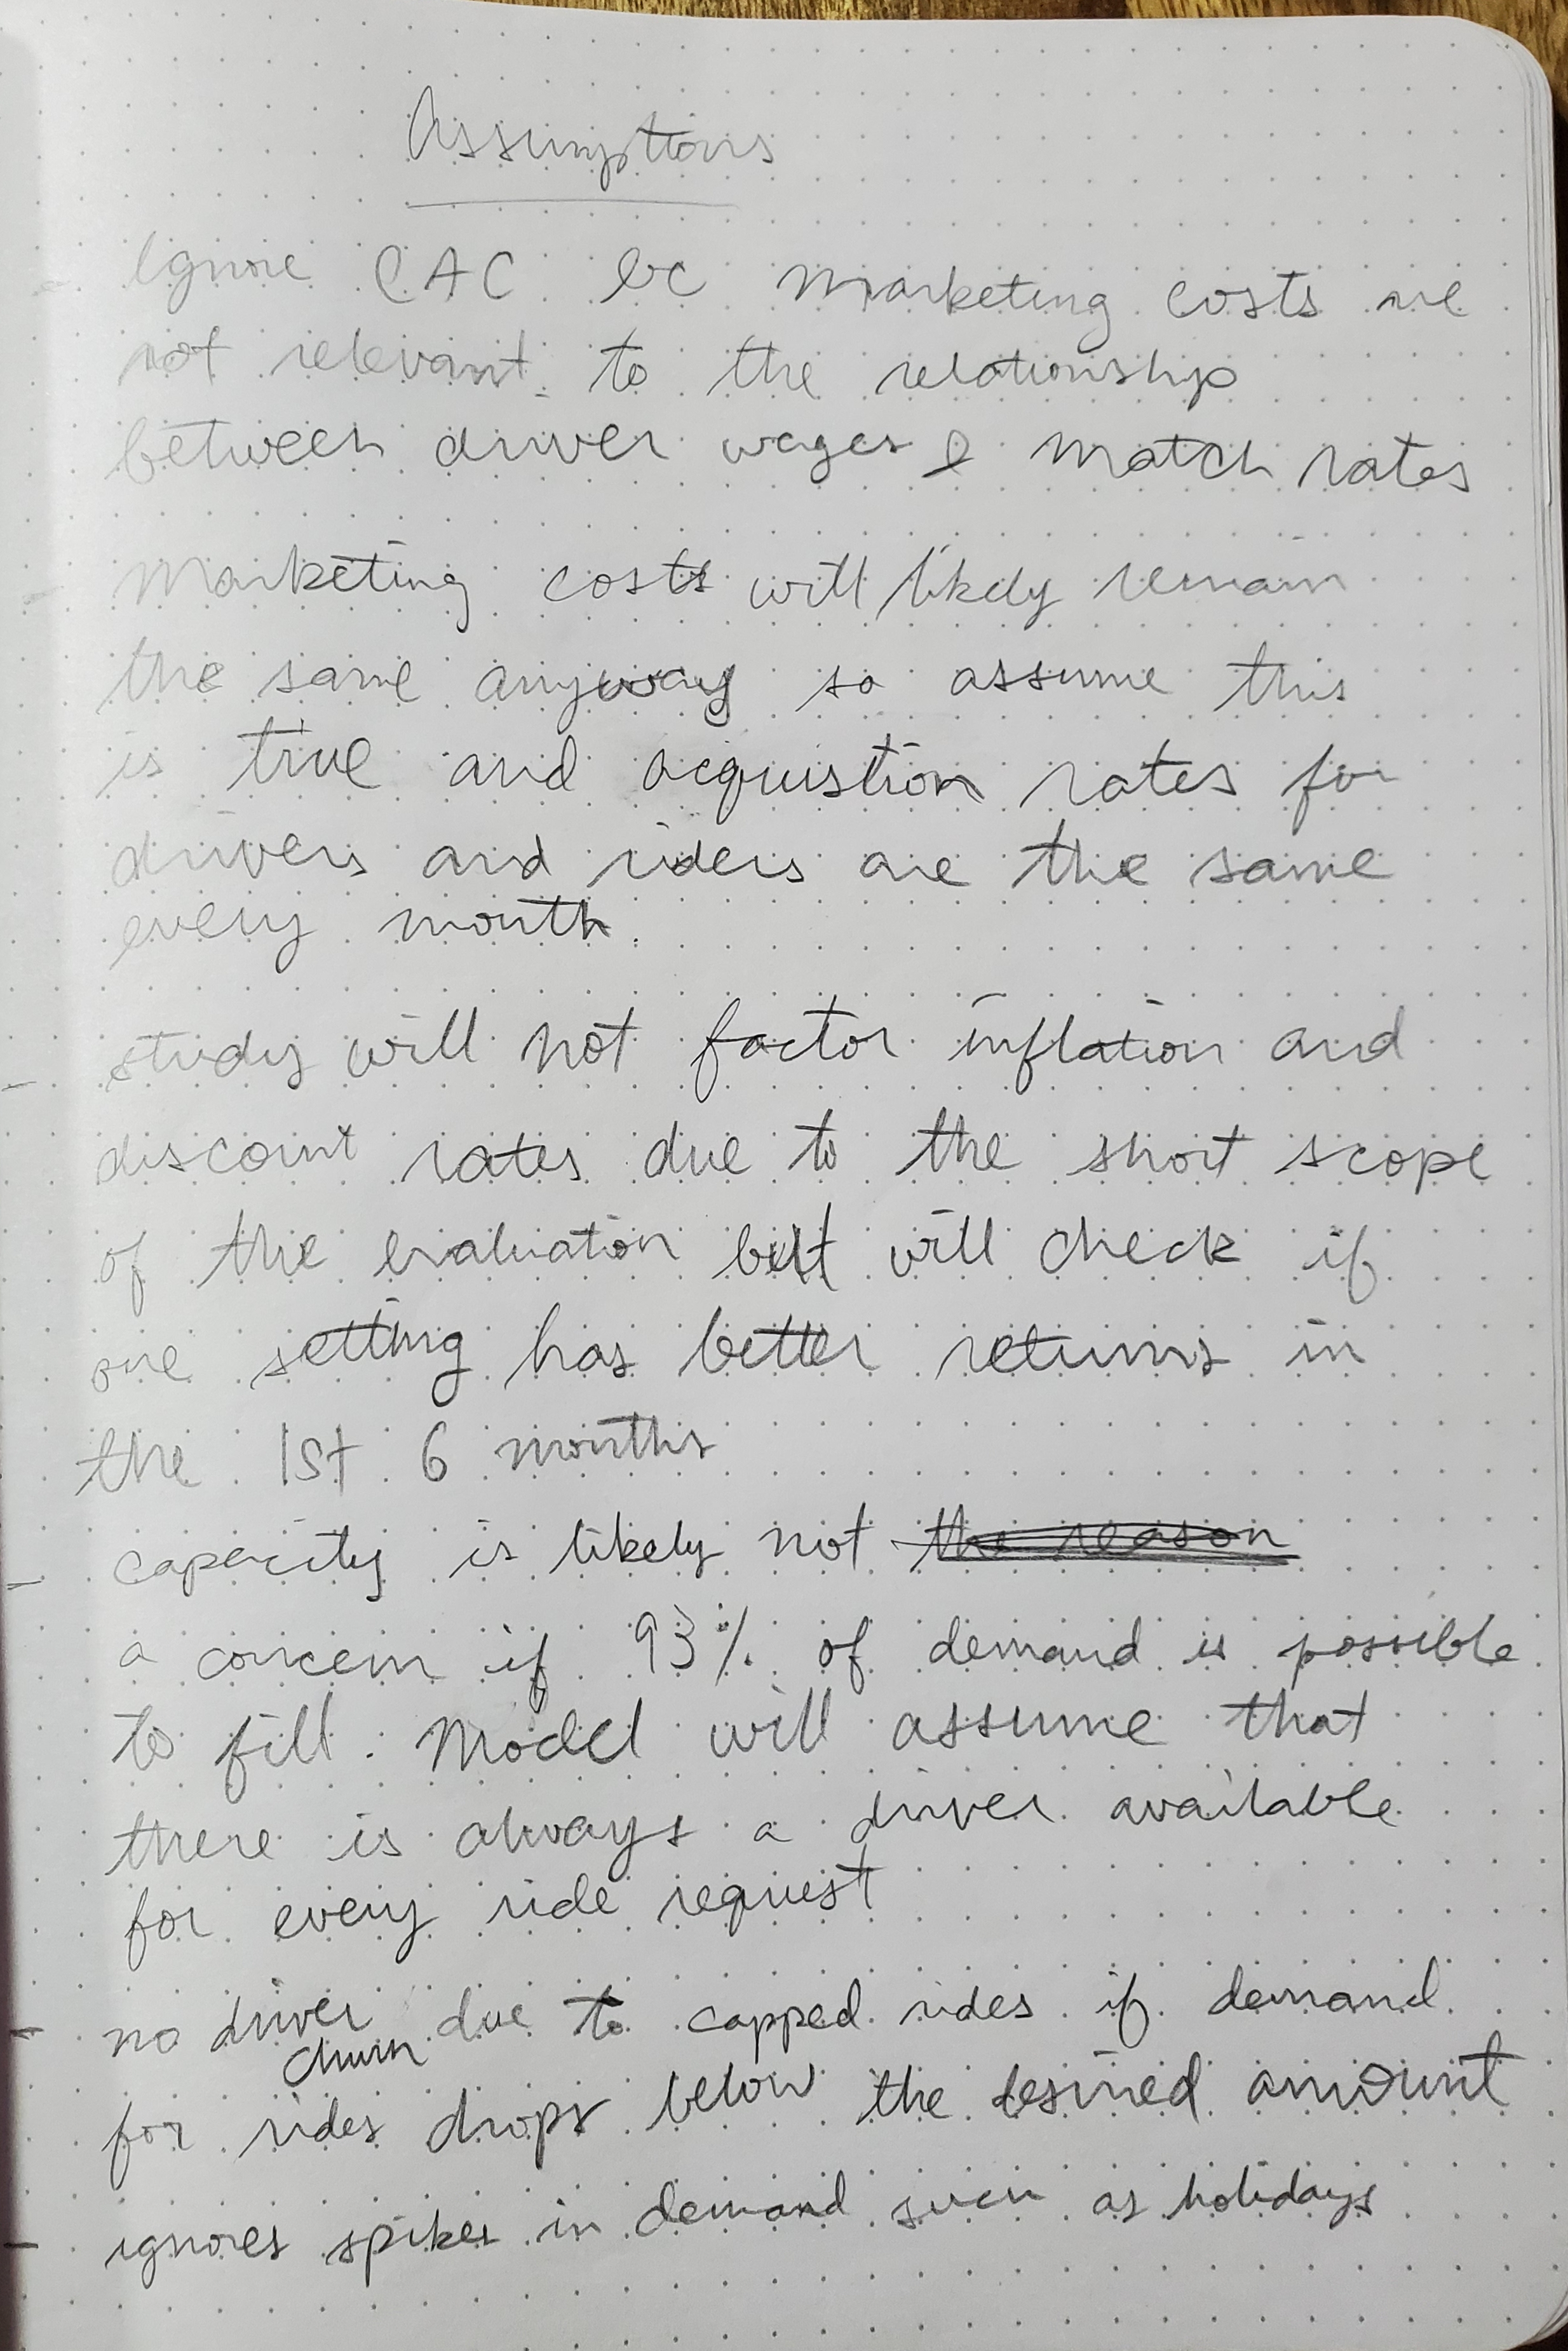 Assumptions
- Ignore CAC bc marketing costs are
not relevant to the relationship
between driver wages & match rates
- Marketing costs will likely remain
the same anyway so assume this
is true and acquistion rates for
drivers and riders are the same
every month.
- study will not factor inflation and
discount rates due to the short scope
of the evaluation but will check if
one setting has better returns in
the 1st 6 months
- capacity is likely not the reason
a concern if 93% of demand is possible
to fill. Model will assume that
there is always a driver available
for every ride request
- no driver churn due to capped rides if demand
for rides drops below the desired amount
- ignores spikes in demand such as holidays